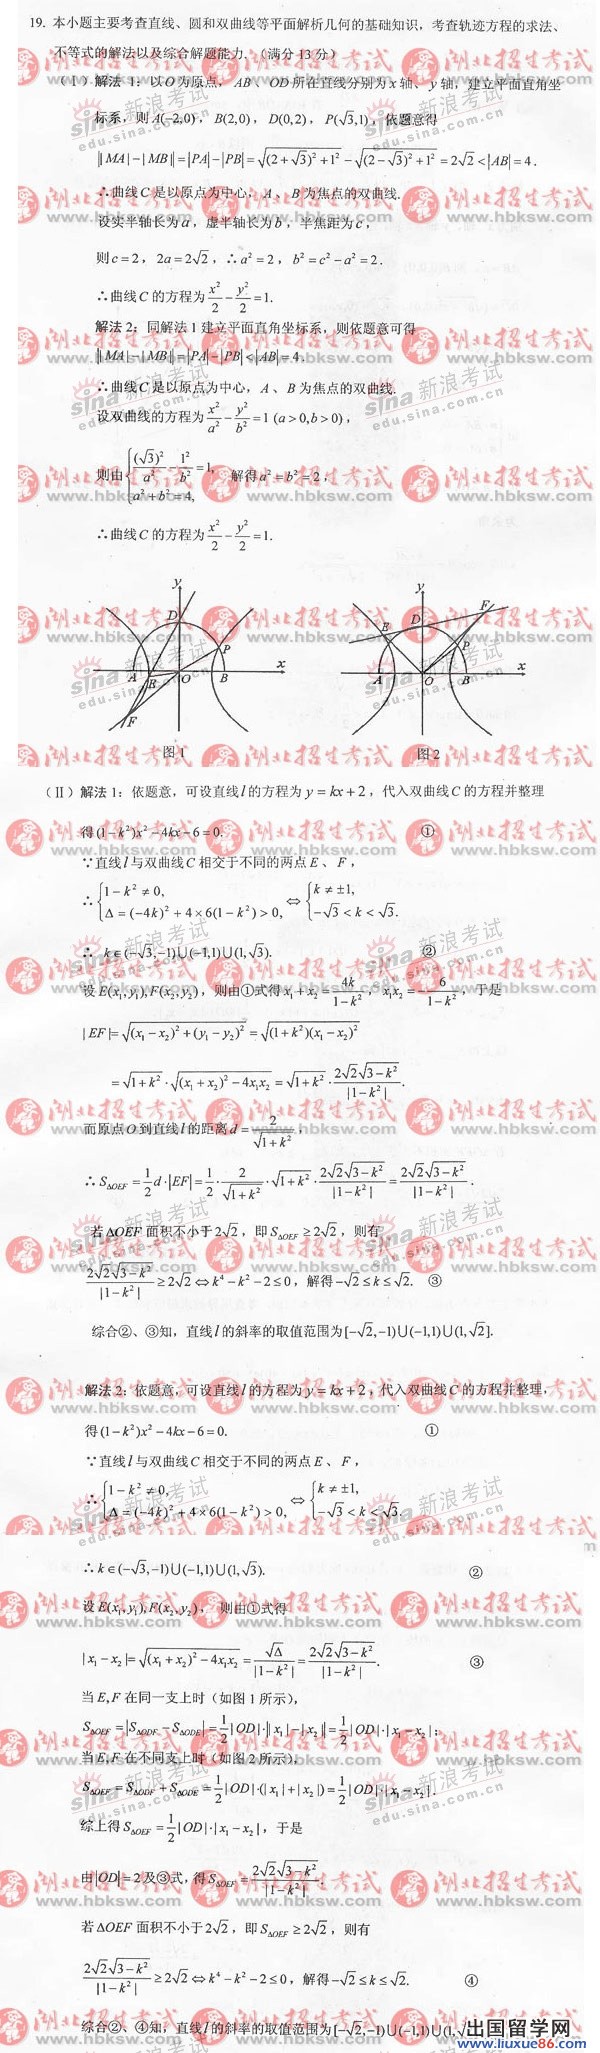 19. 本小题主要考查直线、圆和双曲线等平面解析几何的基础知识，考查轨迹方程的求法、
不等式的解法以及综合解题能力.（满分 13 分）
（Ⅰ）解法 1：以O为原点，AB、OD所在直线分别为x轴、y轴，建立平面直角坐
标系，则 A(-2,0)，B(2,0)，D(0,2)，P(√3,1)，依题意得
||MA|-|MB||=|PA|-|PB|=√((2+√3)²+1²)-√((2-√3)²+1²)=2√2<|AB|=4.
∴曲线C是以原点为中心，A、B为焦点的双曲线.
设实半轴长为a，虚半轴长为b，半焦距为c，
则c=2，2a=2√2，∴a²=2，b²=c²-a²=2.
∴曲线C的方程为x²/2-y²/2=1.
解法 2：同解法 1 建立平面直角坐标系，则依题意可得
||MA|-|MB||=|PA|-|PB|<|AB|=4.
∴曲线C是以原点为中心，A、B为焦点的双曲线.
设双曲线的方程为x²/a²-y²/b²=1 (a>0,b>0)，
则由{(√3)²/a²-1²/b²=1, a²+b²=4, 解得a²=b²=2，
∴曲线C的方程为x²/2-y²/2=1.
y
D
P
A
E
O
B
x
F
图 1
y
F
E
D
P
A
O
B
x
图 2
（Ⅱ）解法 1：依题意，可设直线l的方程为y=kx+2，代入双曲线C的方程并整理
得(1-k²)x²-4kx-6=0. ①
∵直线l与双曲线C相交于不同的两点E、F，
∴{1-k²≠0, Δ=(-4k)²+4×6(1-k²)>0, ⇔ {k≠±1, -√3<k<√3.
∴ k∈(-√3,-1)∪(-1,1)∪(1,√3). ②
设E(x₁,y₁),F(x₂,y₂)，则由①式得x₁+x₂=4k/(1-k²)，x₁x₂=-6/(1-k²)，于是
|EF|=√((x₁-x₂)²+(y₁-y₂)²)=√((1+k²)(x₁-x₂)²)
=√(1+k²)·√((x₁+x₂)²-4x₁x₂)=√(1+k²)·2√2√(3-k²)/|1-k²|.
而原点O到直线l的距离d=2/√(1+k²)，
∴S△OEF=1/2 d·|EF|=1/2·2/√(1+k²)·√(1+k²)·2√2√(3-k²)/|1-k²|=2√2√(3-k²)/|1-k²|.
若△OEF面积不小于2√2，即S△OEF≥2√2，则有
2√2√(3-k²)/|1-k²|≥2√2⇔k⁴-k²-2≤0，解得-√2≤k≤√2. ③
综合②、③知，直线l的斜率的取值范围为[-√2,-1)∪(-1,1)∪(1,√2].
解法 2：依题意，可设直线l的方程为y=kx+2，代入双曲线C的方程并整理，
得(1-k²)x²-4kx-6=0. ①
∵直线l与双曲线C相交于不同的两点E、F，
∴{1-k²≠0, Δ=(-4k)²+4×6(1-k²)>0, ⇔ {k≠±1, -√3<k<√3.
∴k∈(-√3,-1)∪(-1,1)∪(1,√3). ②
设E(x₁,y₁),F(x₂,y₂)，则由①式得
|x₁-x₂|=√((x₁+x₂)²-4x₁x₂)=√Δ/|1-k²|=2√2√(3-k²)/|1-k²|. ③
当E,F在同一支上时（如图 1 所示），
S△OEF=|S△ODF-S△ODE|=1/2|OD|·||x₁|-|x₂||=1/2|OD|·|x₁-x₂|；
当E,F在不同支上时（如图 2 所示），
S△OEF=S△ODF+S△ODE=1/2|OD|·(|x₁|+|x₂|)=1/2|OD|·|x₁-x₂|.
综上得S△OEF=1/2|OD|·|x₁-x₂|，于是
由|OD|=2及③式，得S△OEF=2√2√(3-k²)/|1-k²|.
若△OEF面积不小于2√2，即S△OEF≥2√2，则有
2√2√(3-k²)/|1-k²|≥2√2⇔k⁴-k²-2≤0，解得-√2≤k≤√2. ④
综合②、④知，直线l的斜率的取值范围为[-√2,-1)∪(-1,1)∪(1,√
出国留学网
www.liuxue86.com
湖北招生考试
www.hbksw.com
sina新浪考试
edu.sina.com.cn